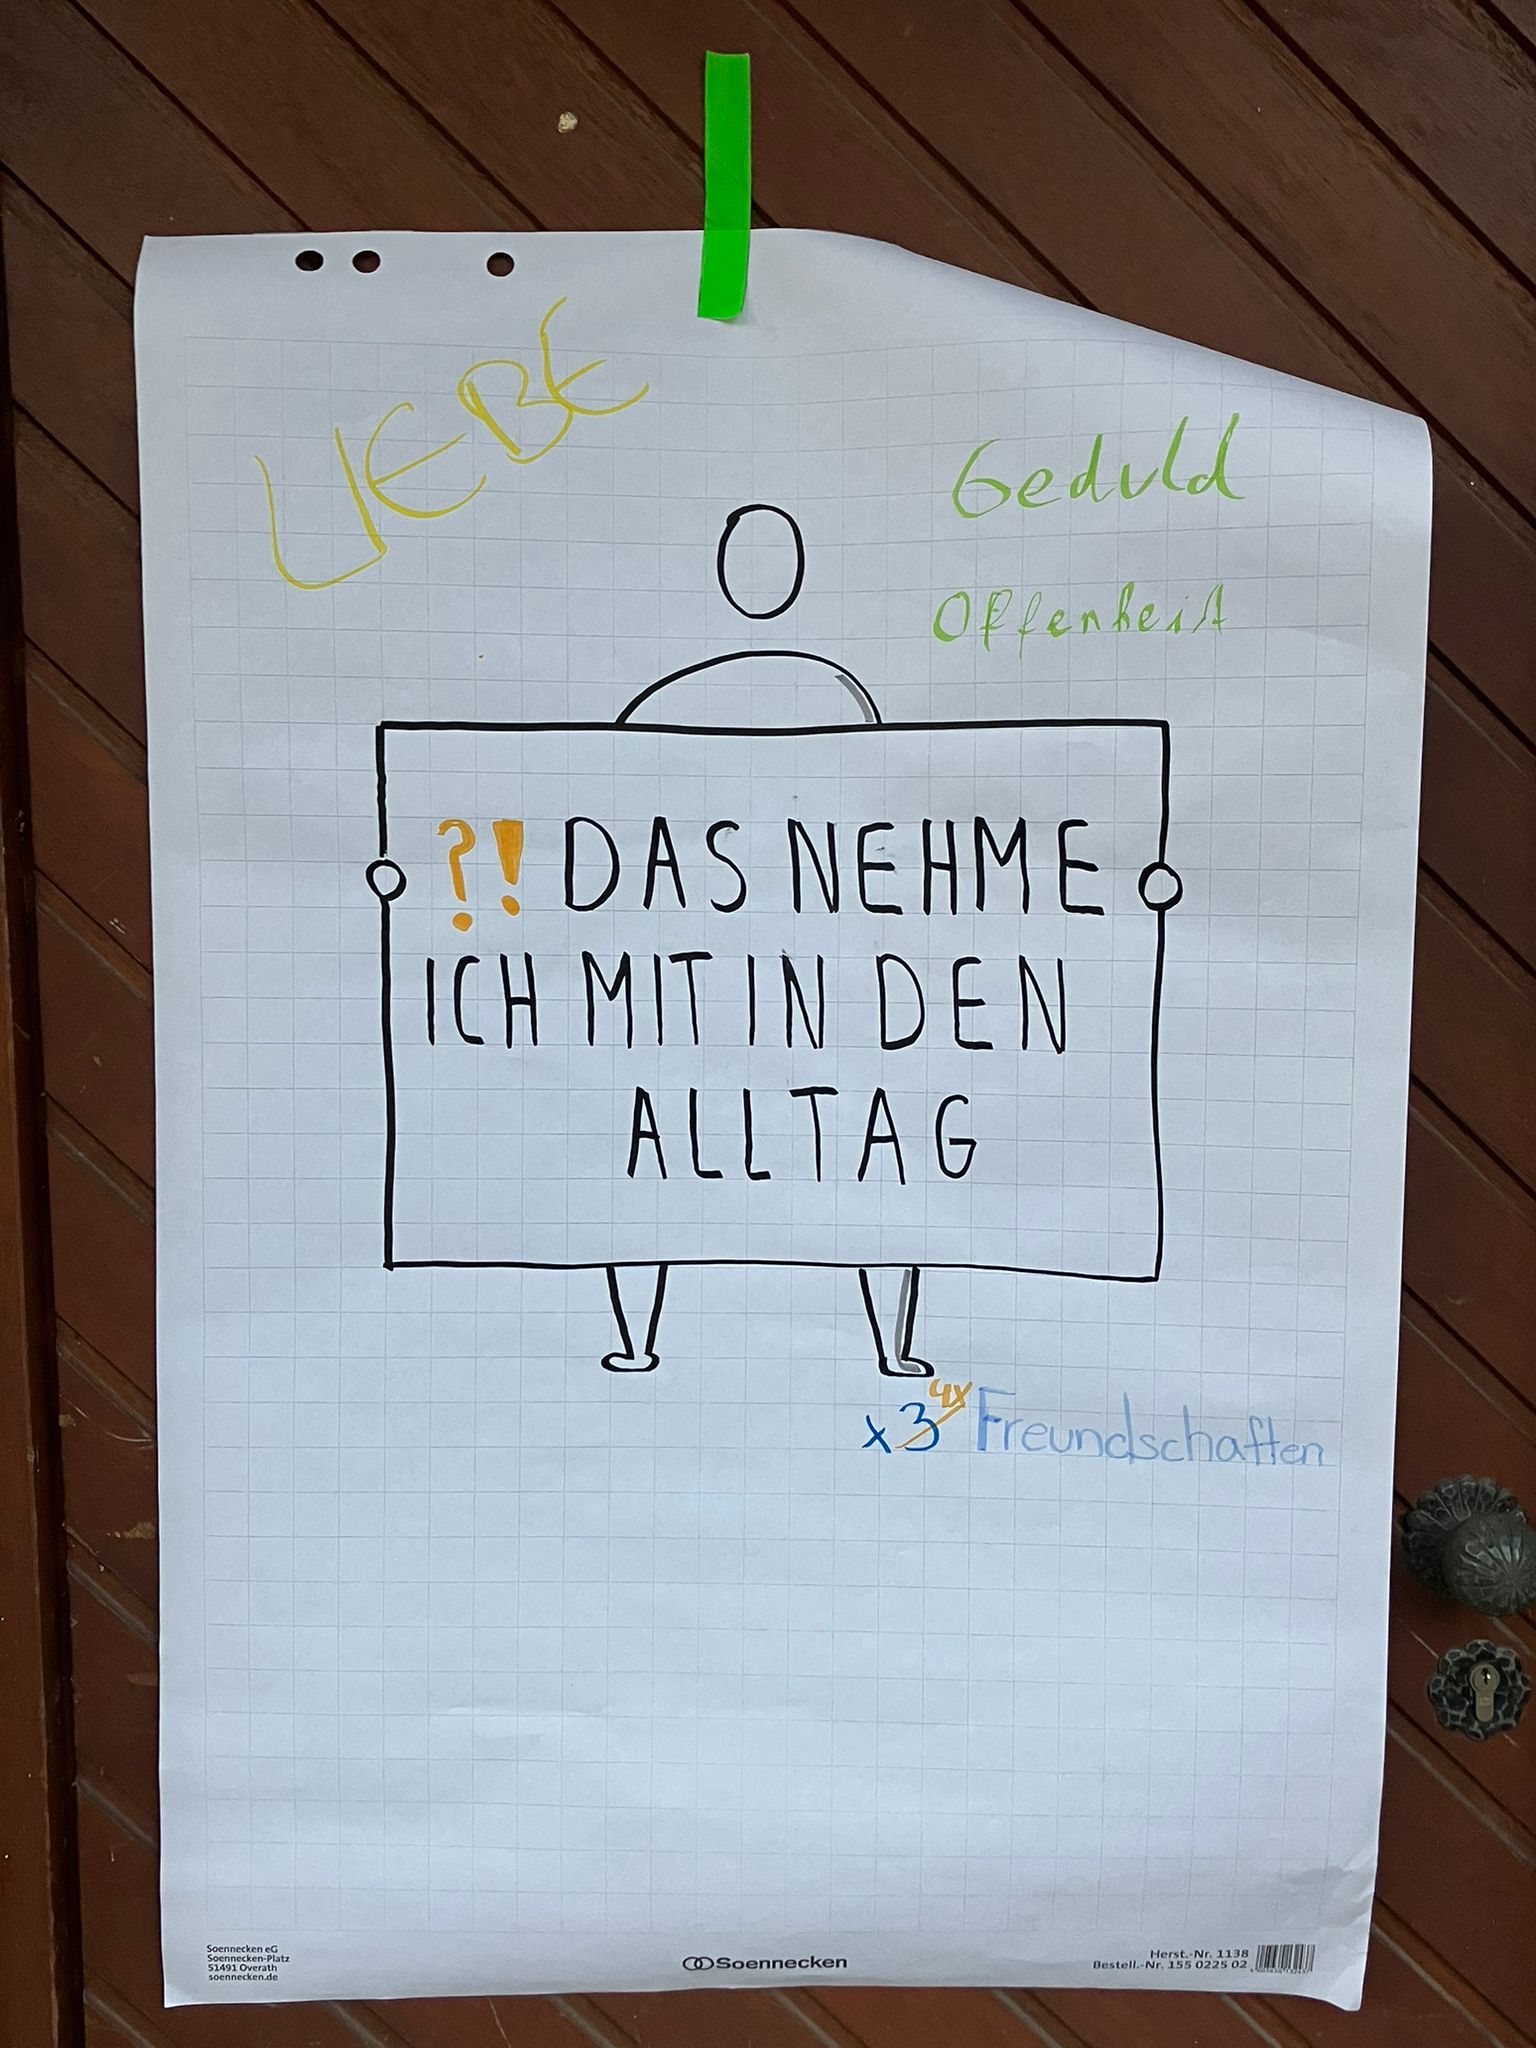 LIEBE
Geduld
Offenheit
?! DAS NEHME
ICH MIT IN DEN
ALLTAG
x3 4x Freundschaften
Soennecken eG
Soennecken-Platz
51491 Overath
soennecken.de
Soennecken
Herst.-Nr. 1138
Bestell.-Nr. 155 0225 02